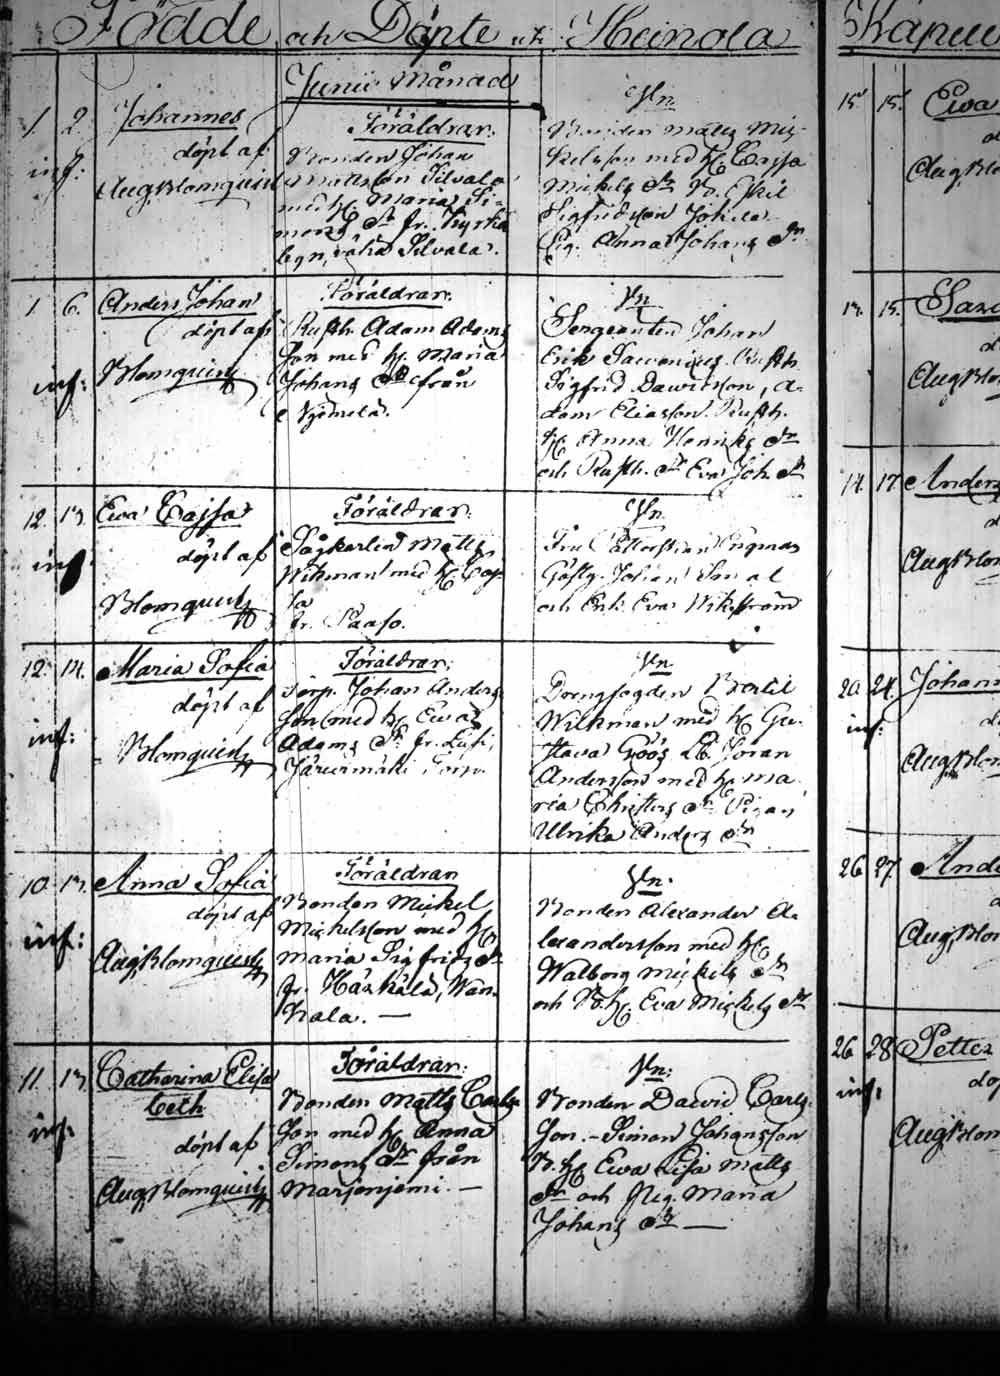 Födde och Döpte uti Heinola
Junii Månad
1. 2. Johannes
döpt af
inf:
Aug. Blomquist
Föräldrar:
Bonden Johan
Mattsson Silvala
med H. Maria Si-
mons Dr fr.
Silvala.
Vn
Bonden Matts Mic-
kelsson med H. Cajsa
Mickels Dr B.
Sigfridsson
Pig. Anna Johans Dr
1. 6. Anders Johan
döpt af
inf: Blomquist
Föräldrar:
Rusth. Adam Adams
son med H. Maria
Johans Dr från
Vn
Sergeanten Johan
Erik Rusth.
Sigfrid Dawidson, A-
dam Eliasson Rusth.
H. Anna Henriks Dr
och Rusth. Dr Eva Joh. Dr
12. 13. Ewa Cajsa
döpt af
inf.
Blomquist
Föräldrar:
Sågkarlen Matts
Wikman med H. Caj-
sa
fr. Paaso.
Vn
Fru Ingman
Johan
och Enk. Eva Wikström
12. 14. Maria Sofia
döpt af
inf:
Blomquist
Föräldrar:
Torp. Johan Anders
son med H. Ewa
Adams Dr fr.
Järwimäki Torp.
Vn
Drengfogden
Wilkman med H. Gu-
stava Göran
Andersson med H. Ma-
ria Christers Dr Pigan
Ulrika Anders Dr
10. 13. Anna Sofia
döpt af
inf:
Aug. Blomquist
Föräldrar
Bonden Mickel
Mickelsson med H.
Maria Sigfrids Dr
fr.
Vn.
Bonden Alexander A-
lexandersson med H.
Walborg Mickels Dr
och B. H. Eva Mickels Dr
11. 13. Catharina Elisa
beth
inf:
döpt af
Aug. Blomquist
Föräldrar:
Bonden Matts Carls
son med H. Anna
Simons Dr från
Marjoniemi. —
Vn:
Bonden Dawid Carls
son. – Simon Johansson
B. H. Ewa Lisa Matts
Dr och Pig. Maria
Johans Dr —
15. 15. Ewa
Aug. Blo
13. 15. Sara
Aug Blo
14. 17. Anders
Aug Blom
20. 24. Johann
inf:
Aug Blom
26 27. Ande
Aug. Blom
26 28 Petter
döp
inf.
Aug Blom